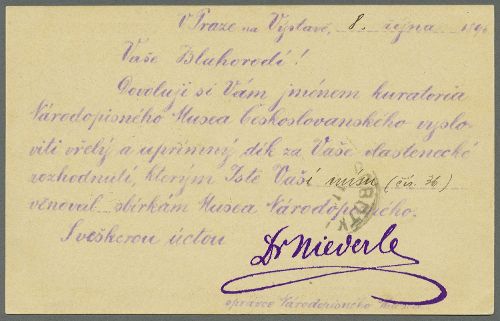 V Praze na Výstavě, 8. října
Vaše Blahorodí!
Dovoluji si Vám jménem kuratoria
Národopisného Musea Českoslovanského vyslo-
viti vřelý a upřímný dík za Vaše vlastenecké
rozhodnutí, kterým jste Vaší mísu (čís. 36)
věnoval sbírkám Musea Národopisného.
S veškerou úctou
Dr Niederle
správce Národopisného Musea